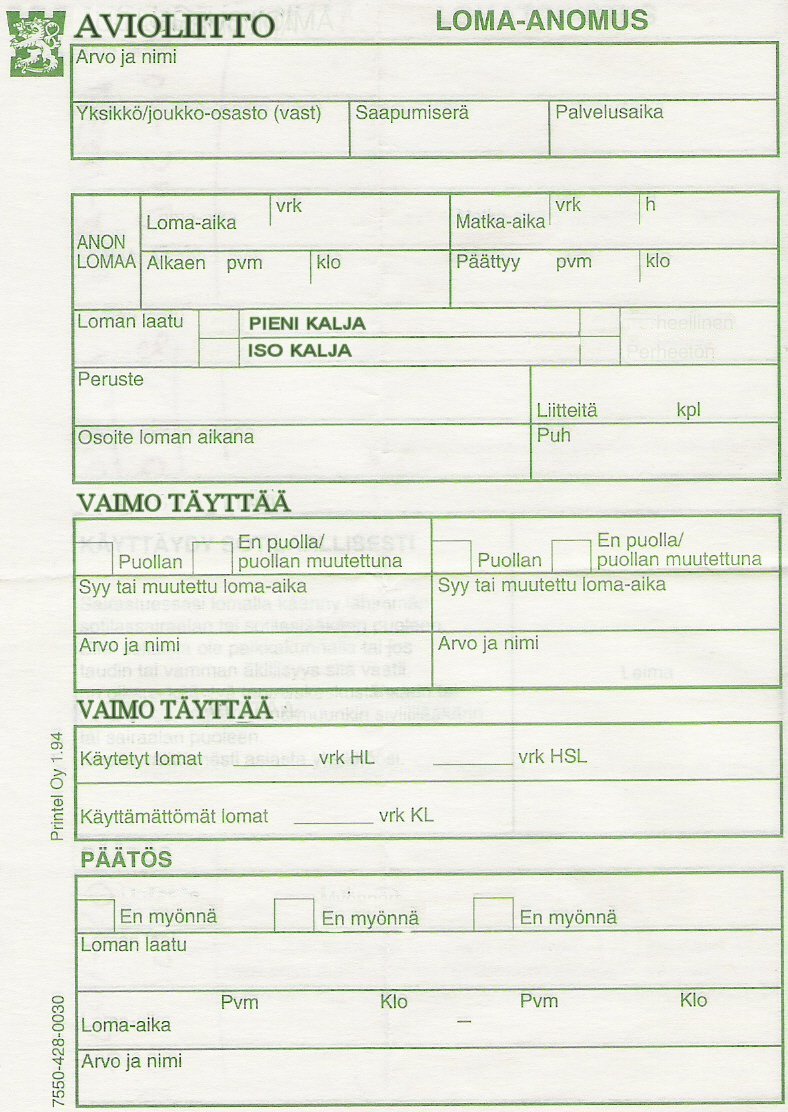 AVIOLIITTO LOMA-ANOMUS
Arvo ja nimi
Yksikkö/joukko-osasto (vast) Saapumiserä Palvelusaika
ANON LOMAA
Loma-aika vrk Matka-aika vrk h
Alkaen pvm klo Päättyy pvm klo
Loman laatu PIENI KALJA
ISO KALJA
Perheetön
Peruste
Liitteitä kpl
Osoite loman aikana Puh
VAIMO TÄYTTÄÄ
Puollan En puolla/ puollan muutettuna Puollan En puolla/ puollan muutettuna
Syy tai muutettu loma-aika Syy tai muutettu loma-aika
Arvo ja nimi Arvo ja nimi
Leima
VAIMO TÄYTTÄÄ
Käytetyt lomat vrk HL vrk HSL
Käyttämättömät lomat vrk KL
Printel Oy 1.94
PÄÄTÖS
En myönnä En myönnä En myönnä
Loman laatu
Pvm Klo Pvm Klo
Loma-aika –
Arvo ja nimi
7550-428-0030